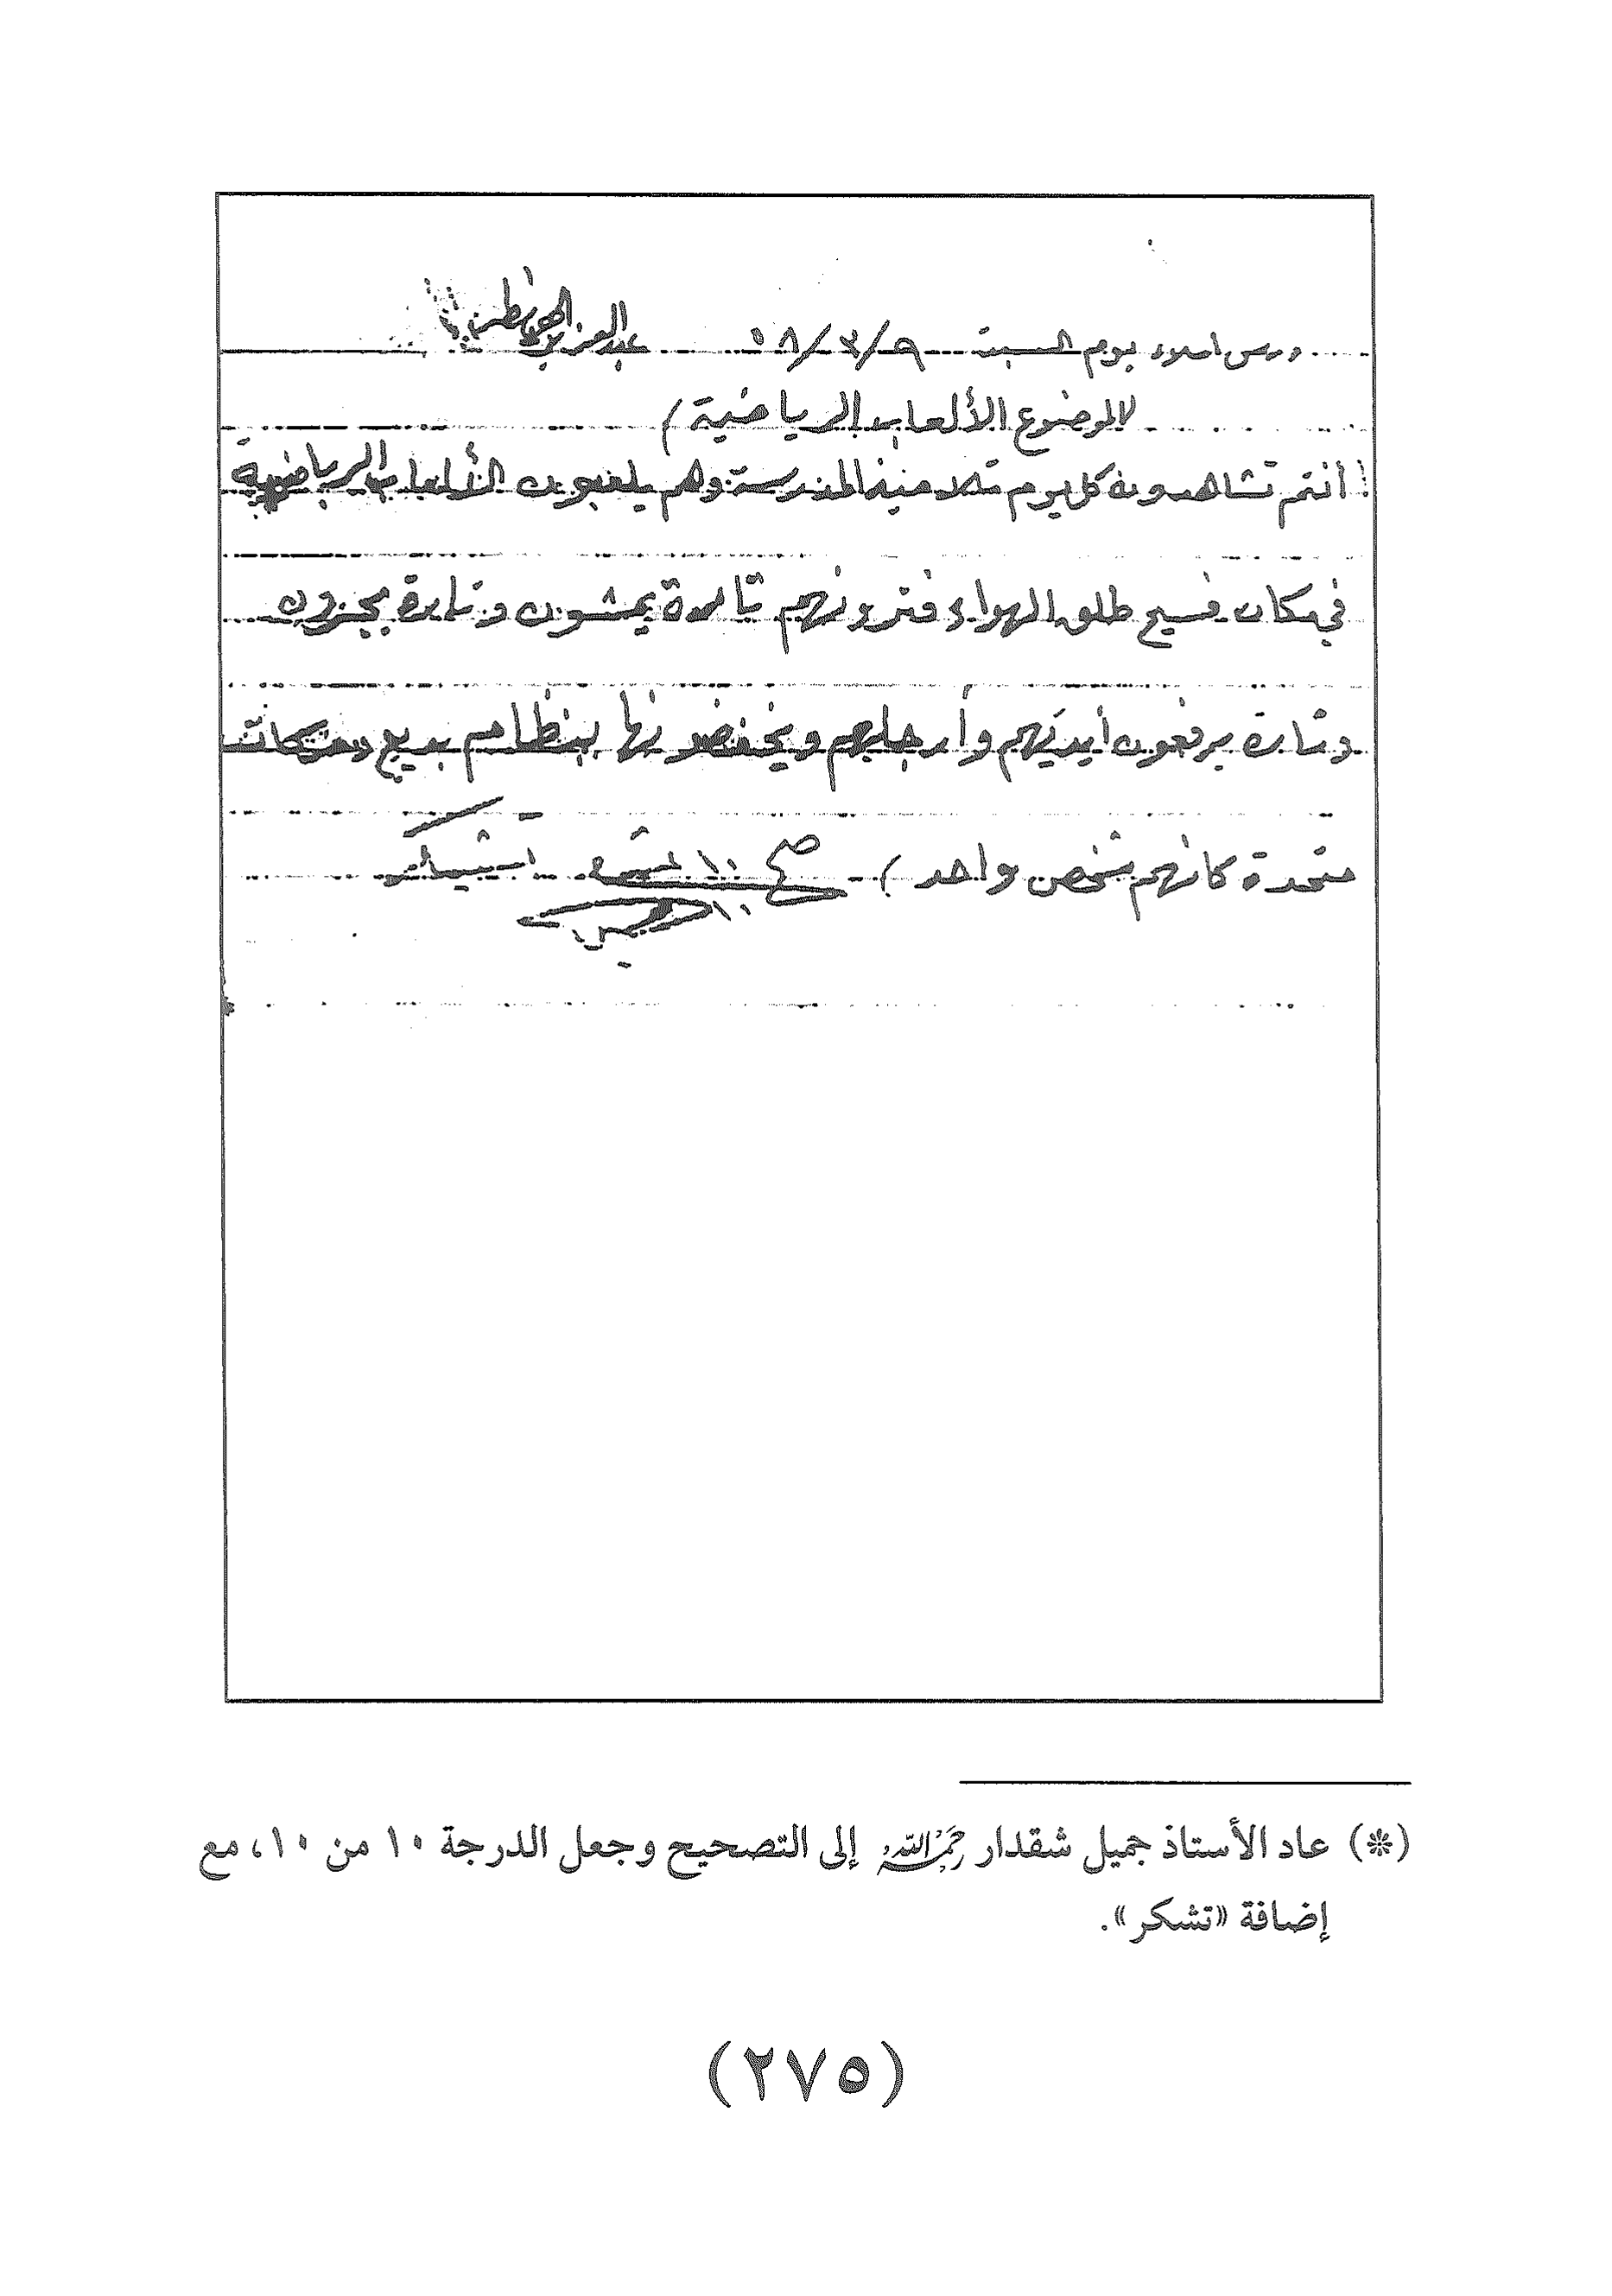 درس املاء يوم السبت ٩/٣/٥٨ عبد العزيز
(الموضوع الألعاب الرياضية)
أنتم تشاهدون كل يوم تلامنيذ المدرسة وهم يلعبون الألعاب الرياضية
في مكان فسيح طلق الهواء فترونهم تارة يمشون وتارة يجرون
وتارة يرفعون أيديهم وأرجلهم ويخفضونها بنظام بديع وحركات
متحدة كانهم شخص واحد ) صح ١٠
١٠
(*) عاد الأستاذ جميل شقدار رحمه الله إلى التصحيح وجعل الدرجة ١٠ من ١٠، مع
إضافة «تشكر».
(٢٧٥)